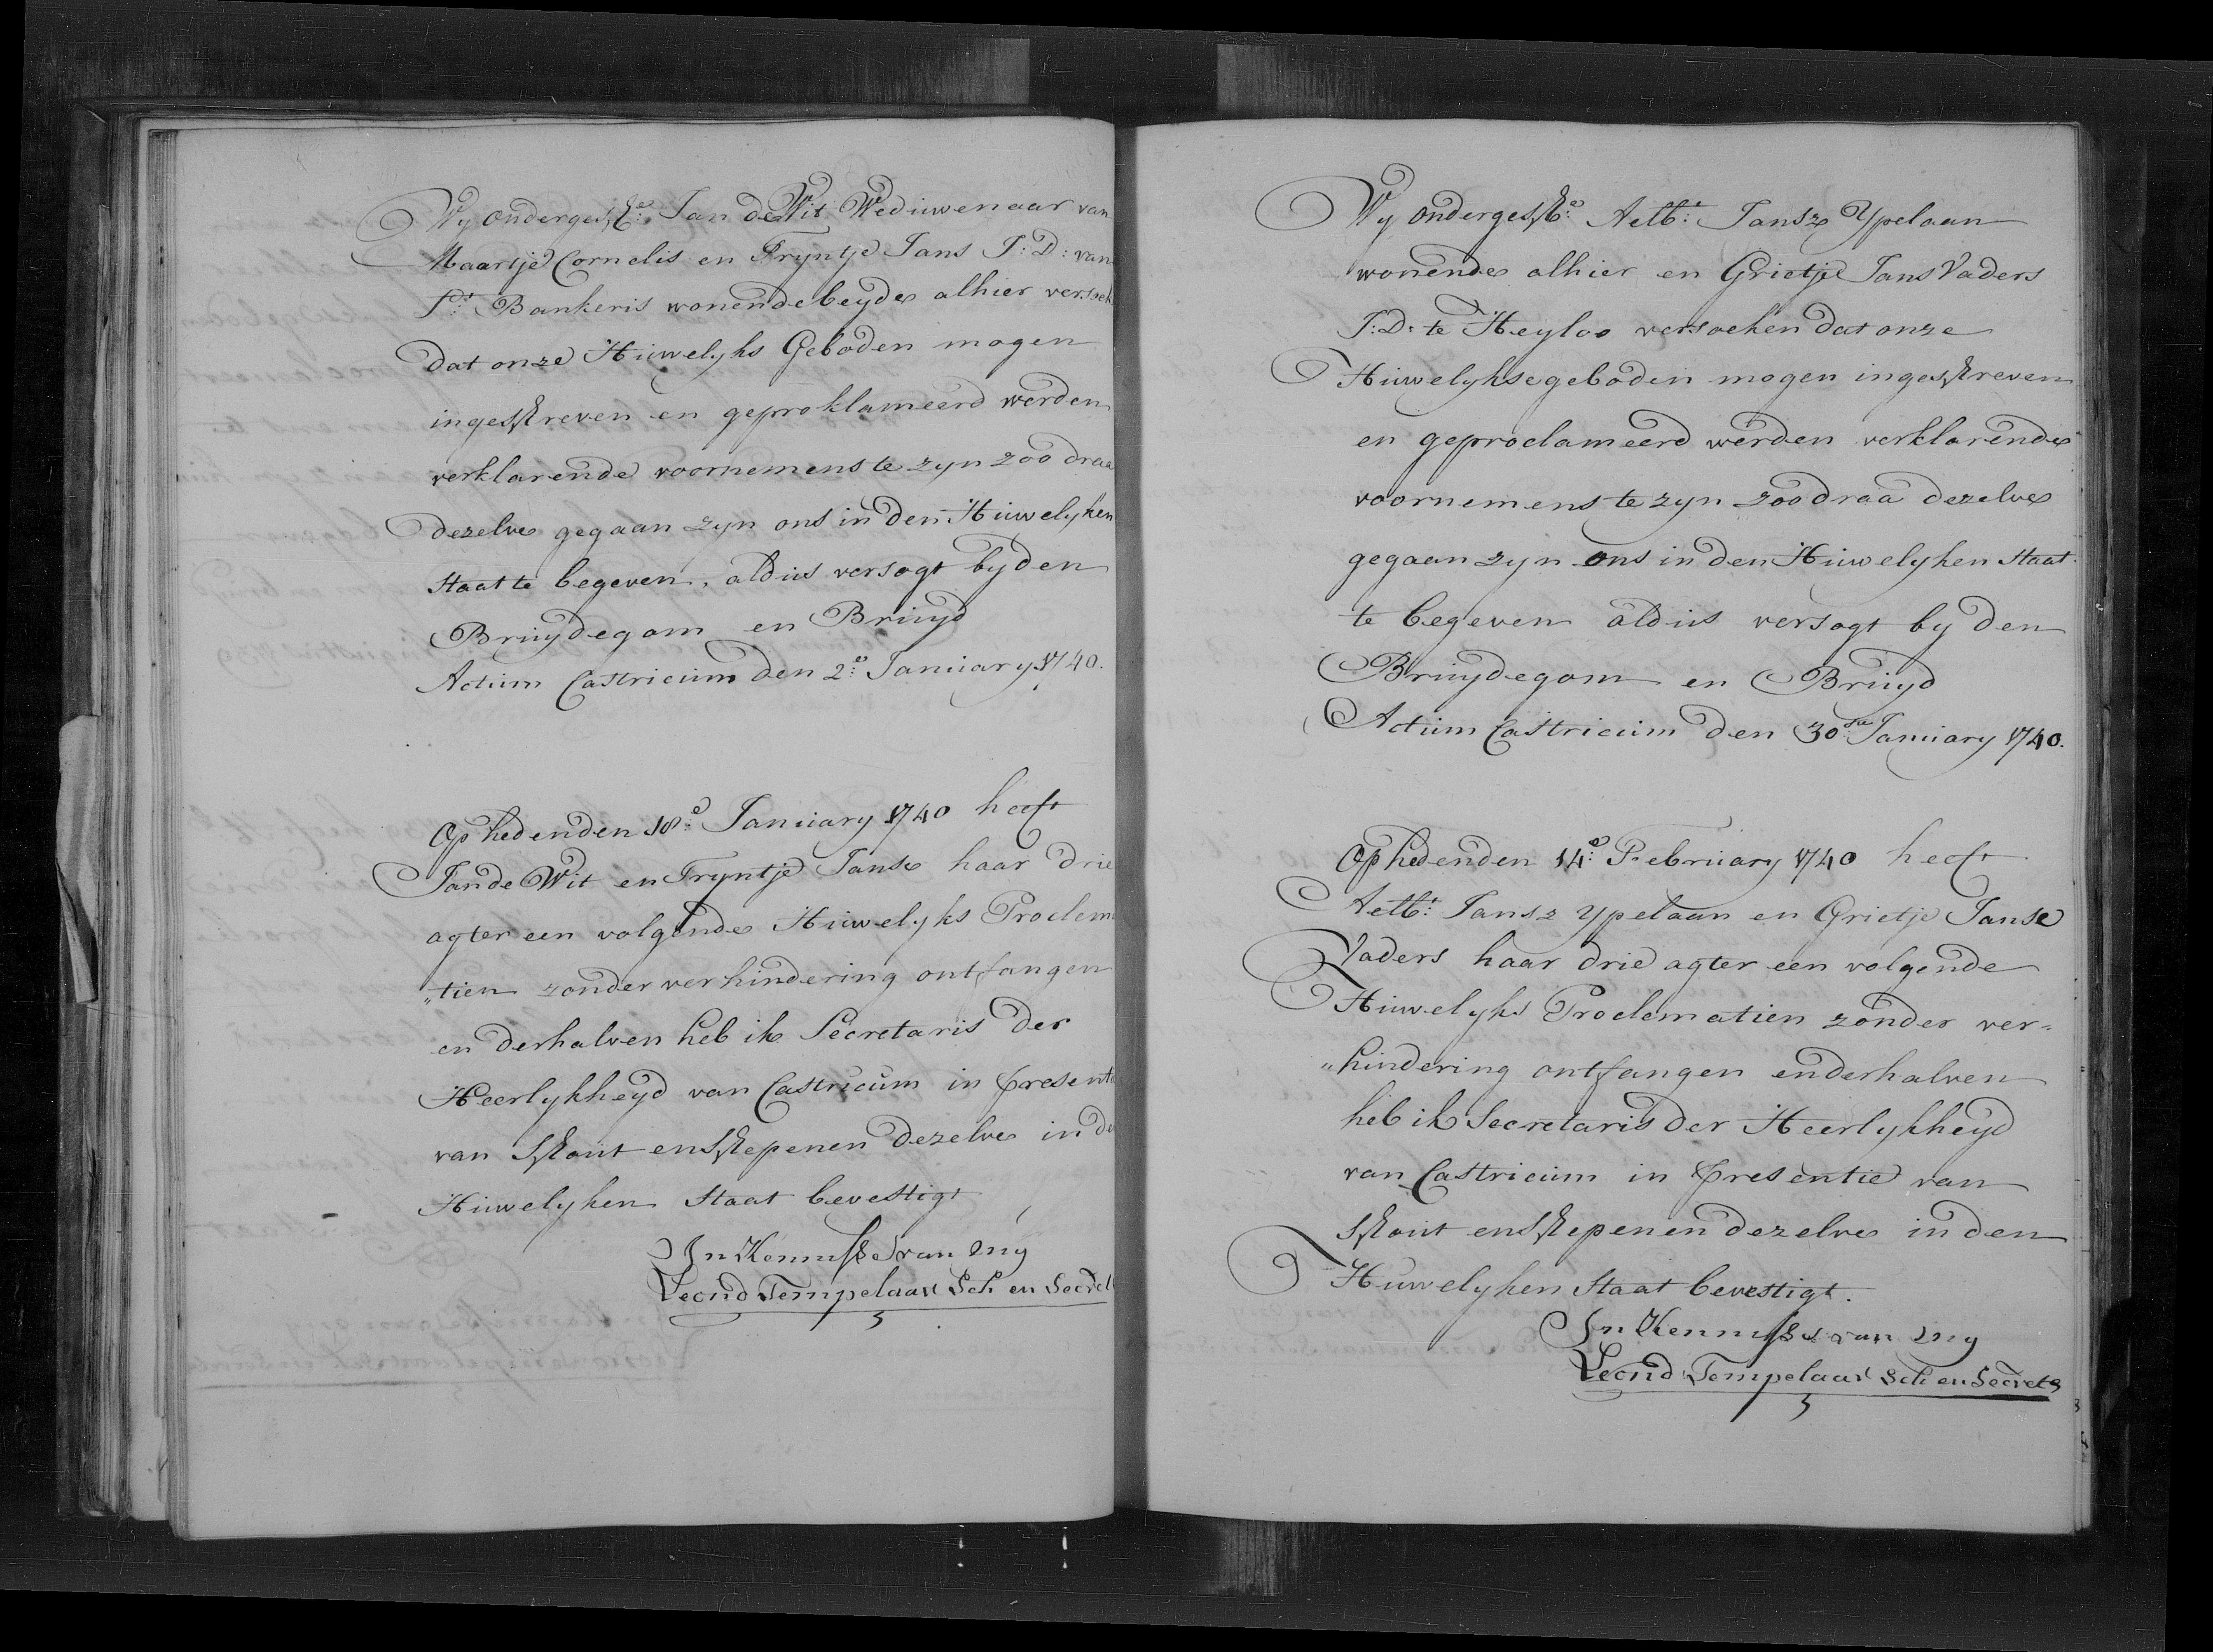 Wy ondergessr:e Jan de Wit Weduwenaar van
Maartje Cornelis en Tryntje Jans J: D: van
St: Bankeris wonende beyde alhier versoek
dat onze Huwelyks Geboden mogen
ingeschreven en geproklameerd werden
verklarende voornemens te zyn zoo draa
dezelve gegaan zyn ons in den Huwelyken
Staat te begeven, aldus versogt by den
Bruydegom en Bruyd
Actum Castricum den 2:e January 1740.
Op heden den 18:e January 1740 heeft
Jan de Wit en Tryntje Janse haar drie
agter een volgende Huwelyks Proclema
"tien zonder verhindering ontfangen
en derhalven heb ik Secretaris der
Heerlykheyd van Castricum in presenti
van Schout en Schepenen dezelve in de
Huwelyken Staat bevestigt
In Kennisse van my
Leend Tempelaar Sch en Secret
Wy ondergess:e Aelb:t Jansz Ypelaan
wonende alhier en Grietje Jans Vaders
J: D: te Heyloo versoeken dat onze
Huwelykse geboden mogen ingeschreven
en geproclameerd werden verklarende
voornemens te zyn zoo draa dezelve
gegaan zyn ons in den Huwelyken Staat
te begeven aldus versogt by den
Bruydegom en Bruyd
Actum Castricum den 30ste January 1740.
Op heden den 14:e February 1740 heeft
Aelb:t Jansz Ypelaan en Grietje Janse
Vaders haar drie agter een volgende
Huwelyks Proclematien zonder ver=
"hindering ontfangen en derhalven
heb ik Secretaris der Heerlykheyd
van Castricum in presentie van
Schout en Schepenen dezelve in den
Huwelyken Staat bevestigt.
In Kennisse van my
Leend Tempelaar Sch en Secrets